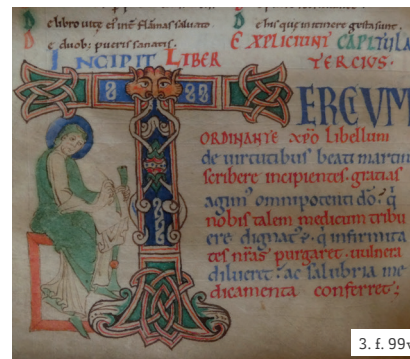 D e libro vite ei' int' flamas saluato
D e duob; pueris sanatis.
D e his que in itinere gesta sunt.
EXPLICIUNT CAPITULA
INCIPIT LIBER TERCIUS.
TERCIVM
ORDINANTE xpo libellum
de uirtutibus beati martini
scribere incipientes. gratias
agim' omnipotenti do. q
nobis talem medicum tribu
ere dignat' e. q infirmita
tes nras purgaret. uulnera
dilueret. ac salubria me
dicamenta conferret:
3. f. 99v